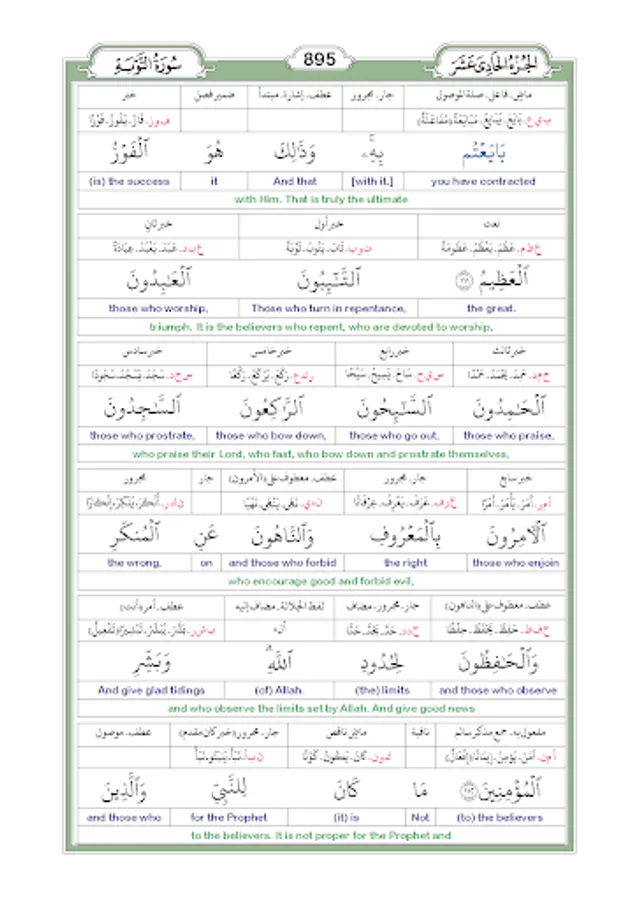 الجزء الحادي عشر 895 سورة التوبة
ماض۔ فاعل۔ صلة الموصول جار۔ مجرور عطف۔ إشارة۔ مبتدأ ضمير فصل خبر
ب ي ع۔ فوز۔ فَازَ۔ يَفُوزُ۔ فَوْزًا
بَايَعْتُم بِهِۦ وَذَٰلِكَ هُوَ ٱلْفَوْزُ
you have contracted [with it.] And that it (is) the success
with Him. That is truly the ultimate
نعت خبر أول خبر ثان
عظم۔ عَظُمَ۔ يَعْظُمُ۔ توب۔ تَابَ۔ يَتُوبُ۔ تَوْبَةً عبد۔ عَبَدَ۔ يَعْبُدُ۔ عِبَادَةً
ٱلْعَظِيمُ ٱلتَّـٰٓئِبُونَ ٱلْعَـٰبِدُونَ
the great. Those who turn in repentance, those who worship,
triumph. It is the believers who repent, who are devoted to worship,
خبر ثالث خبر رابع خبر خامس خبر سادس
حمد۔ حَمِدَ۔ يَحْمَدُ۔ حَمْدًا سيح۔ سَاحَ۔ يَسِيحُ۔ سَيْحًا ركع۔ رَكَعَ۔ يَرْكَعُ۔ رَكْعًا سجد۔ سَجَدَ۔ يَسْجُدُ۔ سُجُودًا
ٱلْحَـٰمِدُونَ ٱلسَّـٰٓئِحُونَ ٱلرَّٰكِعُونَ ٱلسَّـٰجِدُونَ
those who praise, those who go out, those who bow down, those who prostrate,
who praise their Lord, who fast, who bow down and prostrate themselves,
خبر سابع جار۔ مجرور عطف۔ معطوف على (الأمرون) جار مجرور
أمر۔ أَمَرَ۔ يَأْمُرُ۔ أَمْرًا عرف۔ عَرَفَ۔ يَعْرِفُ۔ نهي۔ نَهَى۔ يَنْهَى۔ نَهْيًا نكر۔
ٱلْـَٔامِرُونَ بِٱلْمَعْرُوفِ وَٱلنَّاهُونَ عَنِ ٱلْمُنكَرِ
those who enjoin the right and those who forbid on the wrong,
who encourage good and forbid evil,
عطف۔ معطوف على (الناهون) جار۔ مجرور۔ مضاف لفظ الجلالة۔ مضاف إليه عطف۔ أمر (أنت)
حفظ۔ حَفِظَ۔ يَحْفَظُ۔ حِفْظًا حدد۔ أله بشر۔
وَٱلْحَـٰفِظُونَ لِحُدُودِ ٱللَّهِ ۗ وَبَشِّرِ
and those who observe (the) limits (of) Allah. And give glad tidings
and who observe the limits set by Allah. And give good news
مفعول به۔ جمع مذكر سالم نافية ماض ناقص جار۔ مجرور (خبر كان مقدم) عطف۔ موصول
أمن۔ كون۔ كَانَ۔ يَكُونُ۔ كَوْنًا نبأ۔
ٱلْمُؤْمِنِينَ مَا كَانَ لِلنَّبِىِّ وَٱلَّذِينَ
(to) the believers Not (it) is for the Prophet and those who
to the believers. It is not proper for the Prophet and